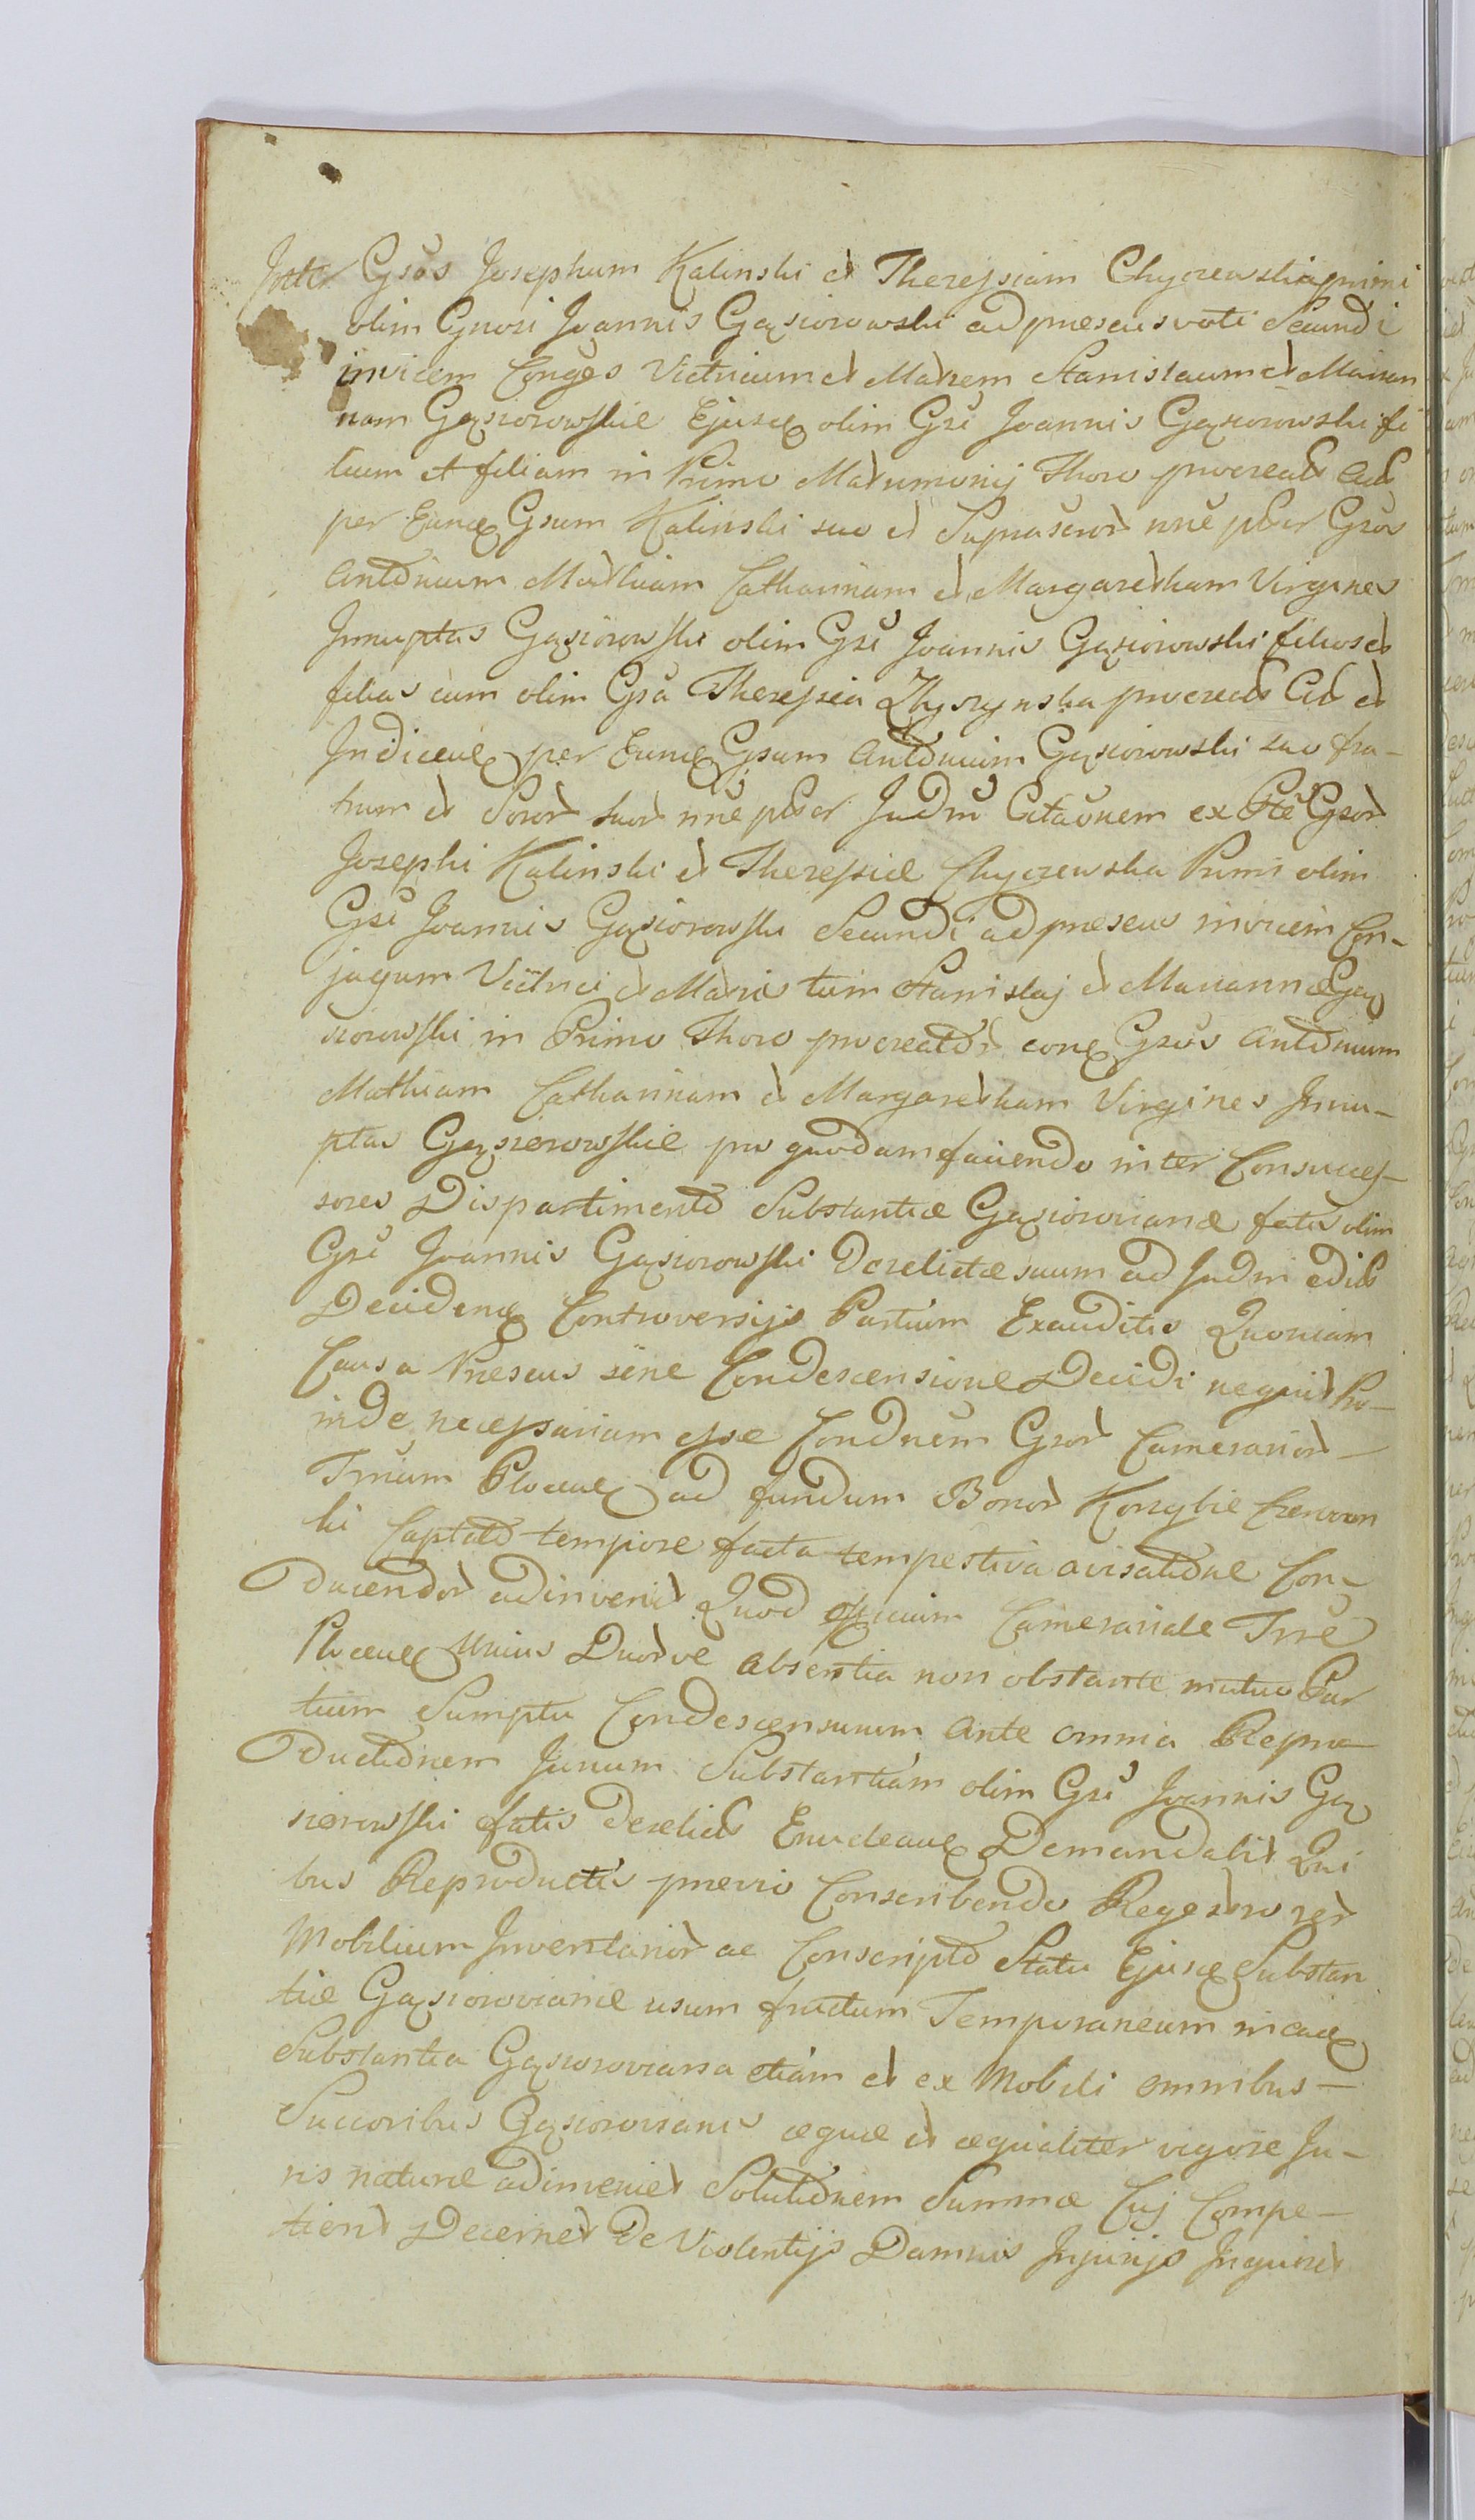 Inter Gsos Josephum Kalinski et Theressiam Chyczewska primi
olim Gnosi Joannis Gąsiorowski ad praesens voti Secundi
invicem Conges Vitricum et Matrem Stanislaum et Marian
nam Gąsiorowskie Ejusq olim Gsi Joannis Gąsiorowski fi
lium et filiam in Primo Matrimonij Thoro procreat
per Eunq Gsum Kalinski suo et Suprascror nne Gsos
Antonium Mathiam Catharinam et Margaretham Virgines
Innuptas Gąsiorowski olim Gsi Joannis Gąsiorowski filios et
filias cum olim Gsa Theressia procreat et
per Eunq Gsum Antonium Gąsiorowski suo fra-
trum et Soror suar nne Judm Citaonem ex Pte Gsor
Josephi Kalinski et Theressiae Chyczewska Primi olim
Gsi Joannis Gąsiorowski Secundi ad praesens invicem Con-
jugum Vitrici et Matris tum Stanislaj et Marianna Gą
siorowski in Primo Thoro procreator conq Gsos Antonium
Mathiam Catharinam et Margaretham Virgines Innu-
ptas Gąsiorowskie pro quodam faciendo inter Consucces-
sores Dispartimento Substantiae Gąsiorowianae fatis olim
Gsi Joannis Gąsiorowski Derelictae suum ad Judm edit
Decidenq Controversijs Partium Exauditis Quoniam
Causa Praesens sine Condescensione Decidi nequit Pro-
inde necessarium esse Condnem Gsor Camerarior-
Trrium Plocen ad fundum Bonor Korzybie
ki Captato tempore facta tempestiva avisatione Con-
ducendor adinvenit Quod officium Camerariale Trre
Plocen Unius Duorve absentia non obstante mutuo Par
tium Sumptu Condescensurum ante omnia Repro-
ductionem Jurium Substantiam olim Gsi Joannis Gą
siorowski fatis derelict Demandabit Qui
bus Reproductis praevio Conscribendo Regestro rer
Mobilium Inventarior ac Conscripto Statu Ejusq Substan
tiae Gąsiorowianae usum fructum Temporaneum in eaq
Substantia Gąsiorowiana etiam et ex Mobili omnibus-
Succoribus Gąsiorowianis aeque et aequaliter vigore Ju-
ris naturae adinveniet Solutionem Summae Cuj Compe-
tient Decernet De Violentijs Damnis Injurijs Inquiret